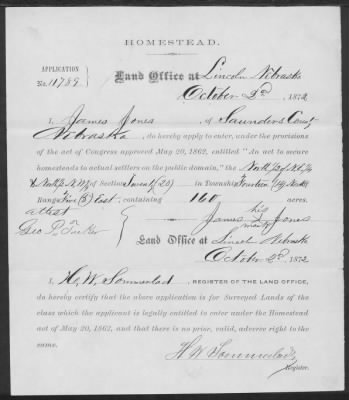 HOMESTEAD.
APPLICATION
No. 11789
Land Office at Lincoln Nebraska
October 2d, 1872
I, James Jones, of Saunders County
Nebraska, do hereby apply to enter, under the provisions
of the act of Congress approved May 20, 1862, entitled "An act to secure
homesteads to actual settlers on the public domain," the North ½ of N.E ¼
& North ½ N.W ¼ of Section Twenty (20) in Township Fourteen (14) North
Range Five (5) East, containing 160 acres.
attest
James his Jones
mark
Geo P. Tucker
Land Office at Lincoln Nebraska
October 2d 1872
I, H. W. Sommerlad, REGISTER OF THE LAND OFFICE,
do hereby certify that the above application is for Surveyed Lands of the
class which the applicant is legally entitled to enter under the Homestead
act of May 20, 1862, and that there is no prior, valid, adverse right to the
same.
H W Sommerlad
Register.